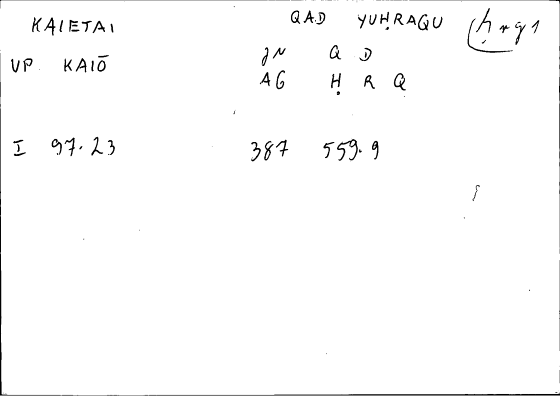 KAIETAI QAD YUḤRAQU ḥrq1
VP KAIŌ JN Q D
AG Ḥ R Q
I 97.23 387 559.9